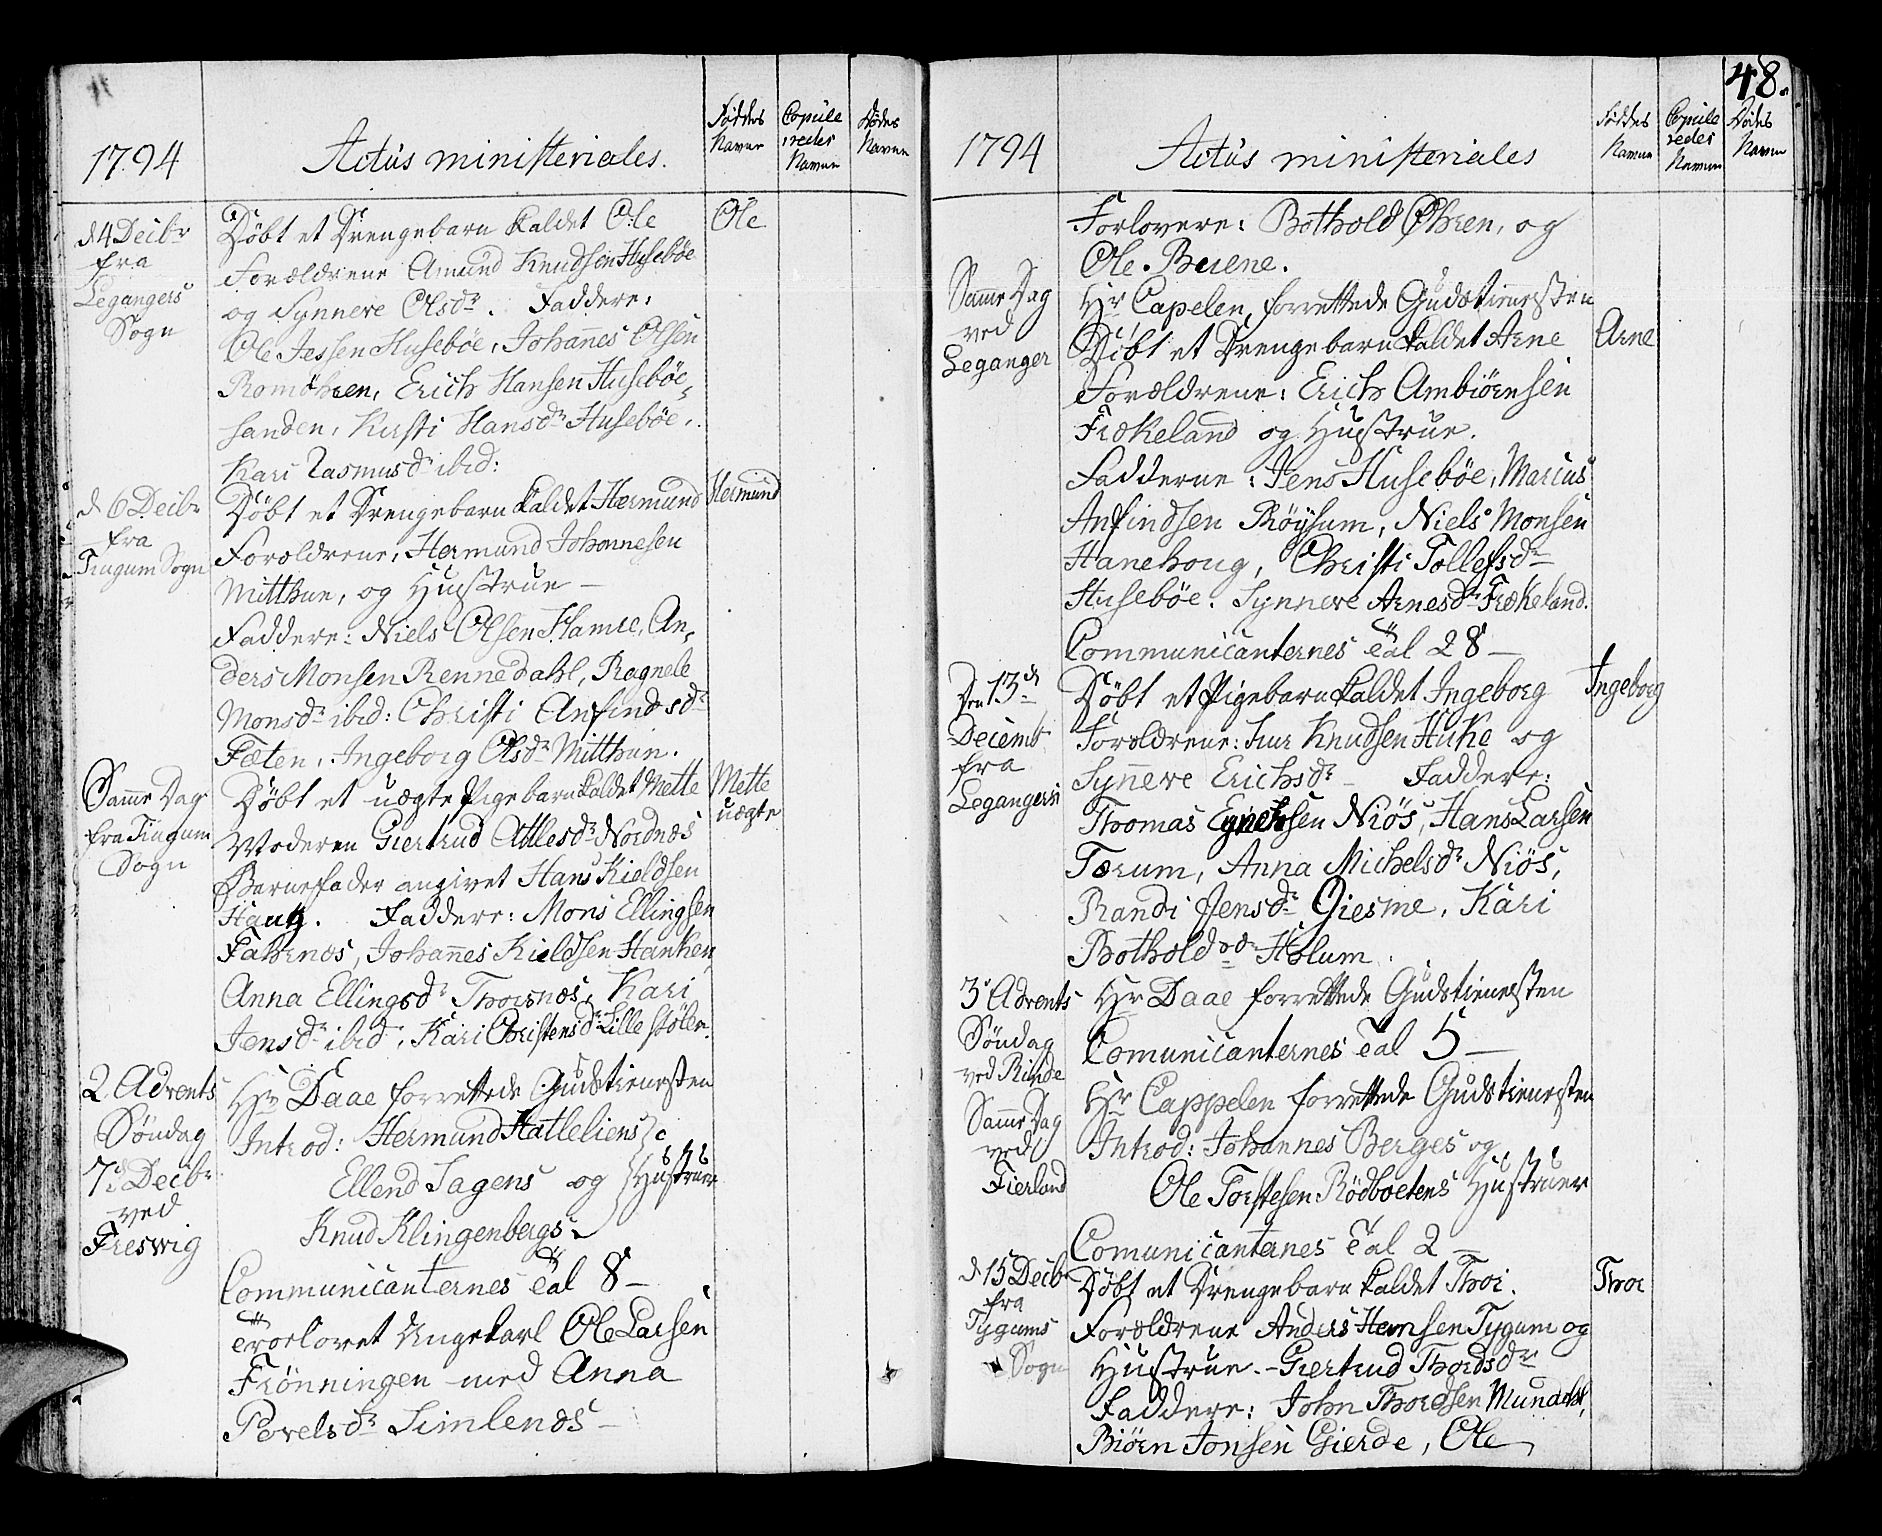 1794
Actus ministeriales.
Fødders Navne
Copuleredes Navne
Dødes Navne
d 4 Decbr
fra
Legangers
Sogn
Døbt et Drengebarn kaldet Ole
Ole
Forældrene Amund Knudsen Husebøe
og Synneve Olsdr. Faddere:
Ole Jessen Husebøe, Johannes Olsen
Romøhren, Erich Hansen Husebøe-
sanden, Kirsti Hansdr Husebøe,
Kari Rasmusdr ibid:
d 6 Decbr
fra
Tingum Sogn
Døbt et Drengebarn kaldet Hermund
Hermund
Forældrene, Hermund Johannesen
Mitthun, og Hustrue –
Faddere: Niels Olsen Hamre, An-
ders Monsen Rennedahl, Ragnele
Monsdr ibid: Christi Anfindsdr
Fæten, Ingeborg Olsdr Mitthun.
Samme Dag
fra Tingum
Sogn
Døbt et uægte Pigebarn kaldet Mette
Mette
uægte
Moderen Giertrud Attlesdr Nordnæs
Barnefader angivet Hans Kieldsen
Haug. Faddere: Mons Ellingsen
Fahrnæs, Johannes Kieldsen Hanken,
Anna Ellingsdr Thorsnæs, Kari
Jensdr ibid, Kari Christensdr Lillestølen.
2 Advents
Søndag
7d Decbr
ved
Freswig
Hr Daae forrettede Gudstienesten
Introd: Hermund Hatleliens
Ellend Sagens og Hustruer
Knud Klingenbergs
Communicanternes Tal 8 –
Trorlovet Ungekarl Ole Larsen
Frønningen med Anna
Povelsdr Simlenæs –
48.
1794
Actus ministeriales
Fødders Navne
Copuleredes Navne
Dødes Navne
Forlovere: Bothold Øhren, og
Ole Buene.
Samme Dag
ved
Leganger
Hr Capelen forrettede Gudstienesten
Døbt et Drengebarn kaldet Arne
Arne
Forældrene: Erich Ambiørnsen
Frækeland og Hustrue.
Fadderne: Jens Husebøe, Marcus
Anfindsen Røysum, Niels Monsen
Hanehoug, Christi Tollefsdr
Husebøe. Synneve Arnesdr Frækeland.
Communicanternes Tal 28 –
Den 13de
Decemb
fra
Legangers
Døbt et Pigebarn kaldet Ingeborg
Ingeborg
Forældrene: Knudsen Huke og
Synneve Erichsdr – Faddere:
Thomas Niøs, Hans Larsen
Tærum, Anna Michelsdr Niøs,
Randi Jensdr Giesme, Kari
Botholdsdr Hølum.
3 Advents
Søndag
ved Rinde
Hr Daae forrettede Gudstienesten
Comunicanternes Tal 5 –
Samme Dag
ved
Fierland
Hr Cappelen forrettede Gudstienesten
Introd: Johannes Berges og
Ole Torstesen Rødboetens Hustruer
Comunicanternes Tal 2 –
d 15 Decbr
fra
Tygums
Sogn
Døbt et Drengebarn kaldet Thor.
Thor
Forældrene Anders Hemsen Tygum og
Hustrue. – Giertrud Thordsdr
Faddere: John Thordsen Mundahl,
Biørn Jonsen Gierde, Ole